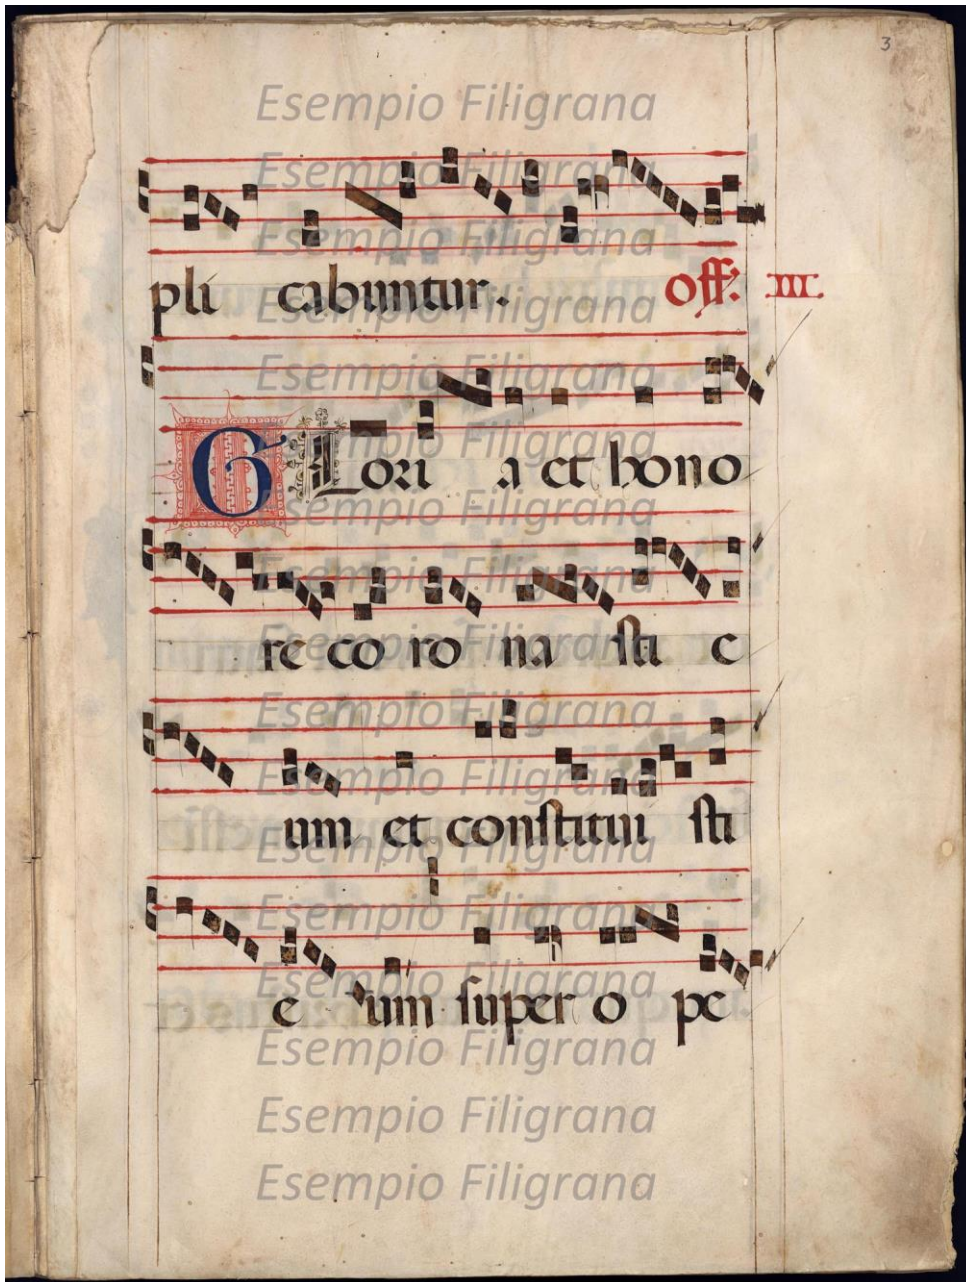 3
Esempio Filigrana
Esempio Filigrana
Esempio Filigrana
pli cabuntur. Off: III.
Esempio Filigrana
Esempio Filigrana
Esempio Filigrana
GLori a et hono
Esempio Filigrana
Esempio Filigrana
re co ro na sti e
Esempio Filigrana
Esempio Filigrana
Esempio Filigrana
um et constitui sti
Esempio Filigrana
Esempio Filigrana
Esempio Filigrana
e um super o pe
Esempio Filigrana
Esempio Filigrana
Esempio Filigrana